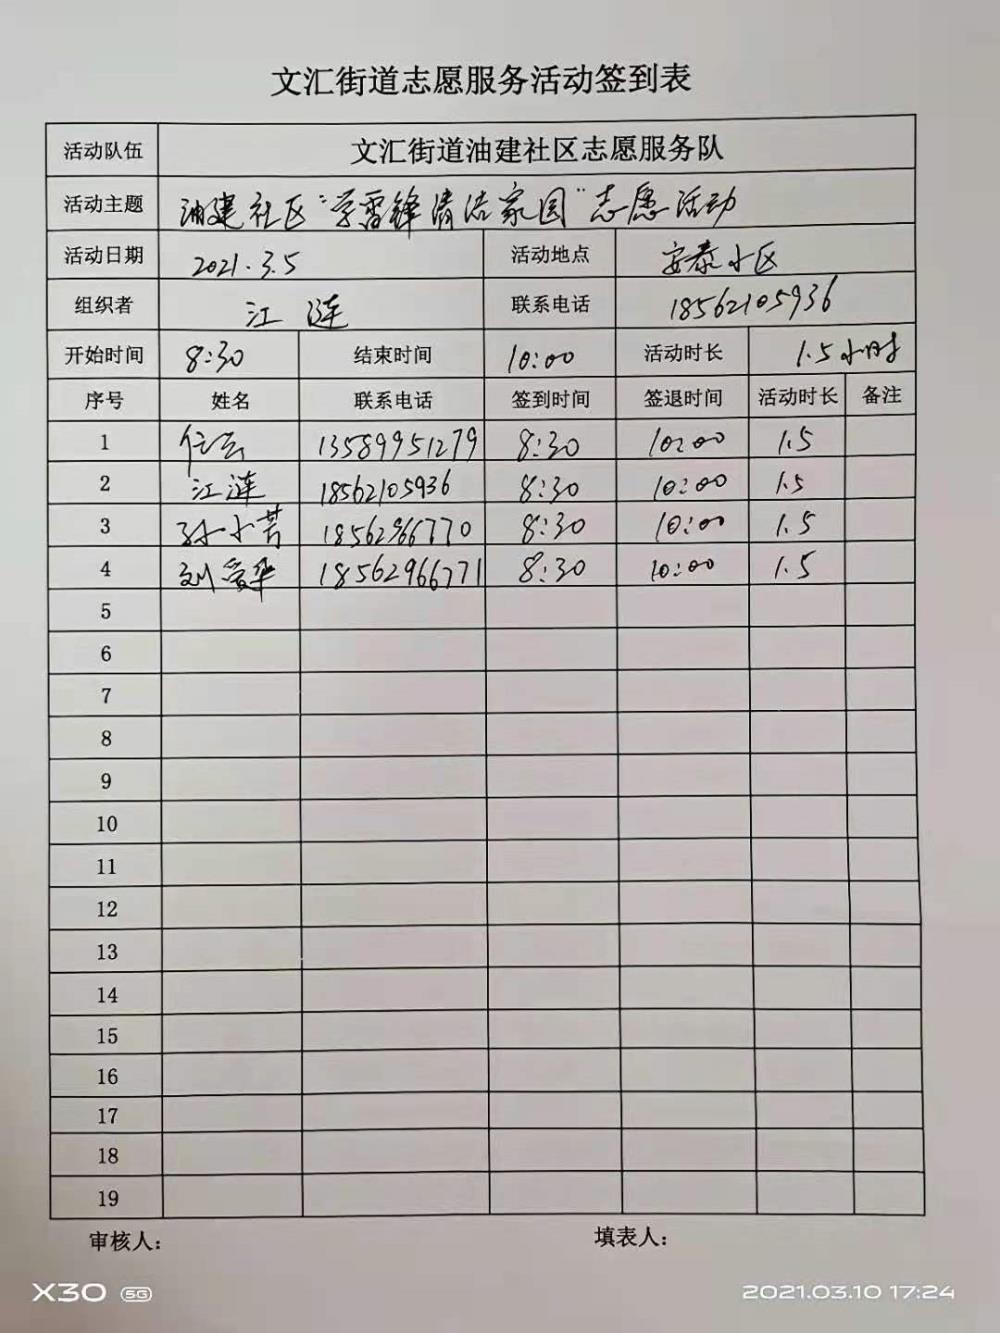 文汇街道志愿服务活动签到表
活动队伍 文汇街道油建社区志愿服务队
活动主题 油建社区“学雷锋清洁家园”志愿活动
活动日期 2021.3.5 活动地点 安泰小区
组织者 江涟 联系电话 18562105936
开始时间 8:30 结束时间 10:00 活动时长 1.5小时
序号 姓名 联系电话 签到时间 签退时间 活动时长 备注
1 13589951279 8:30 10:00 1.5
2 江涟 18562105936 8:30 10:00 1.5
3 孙小芳 18562966770 8:30 10:00 1.5
4 刘爱华 18562966771 8:30 10:00 1.5
5
6
7
8
9
10
11
12
13
14
15
16
17
18
19
审核人： 填表人：
X30 5G 2021.03.10 17:24